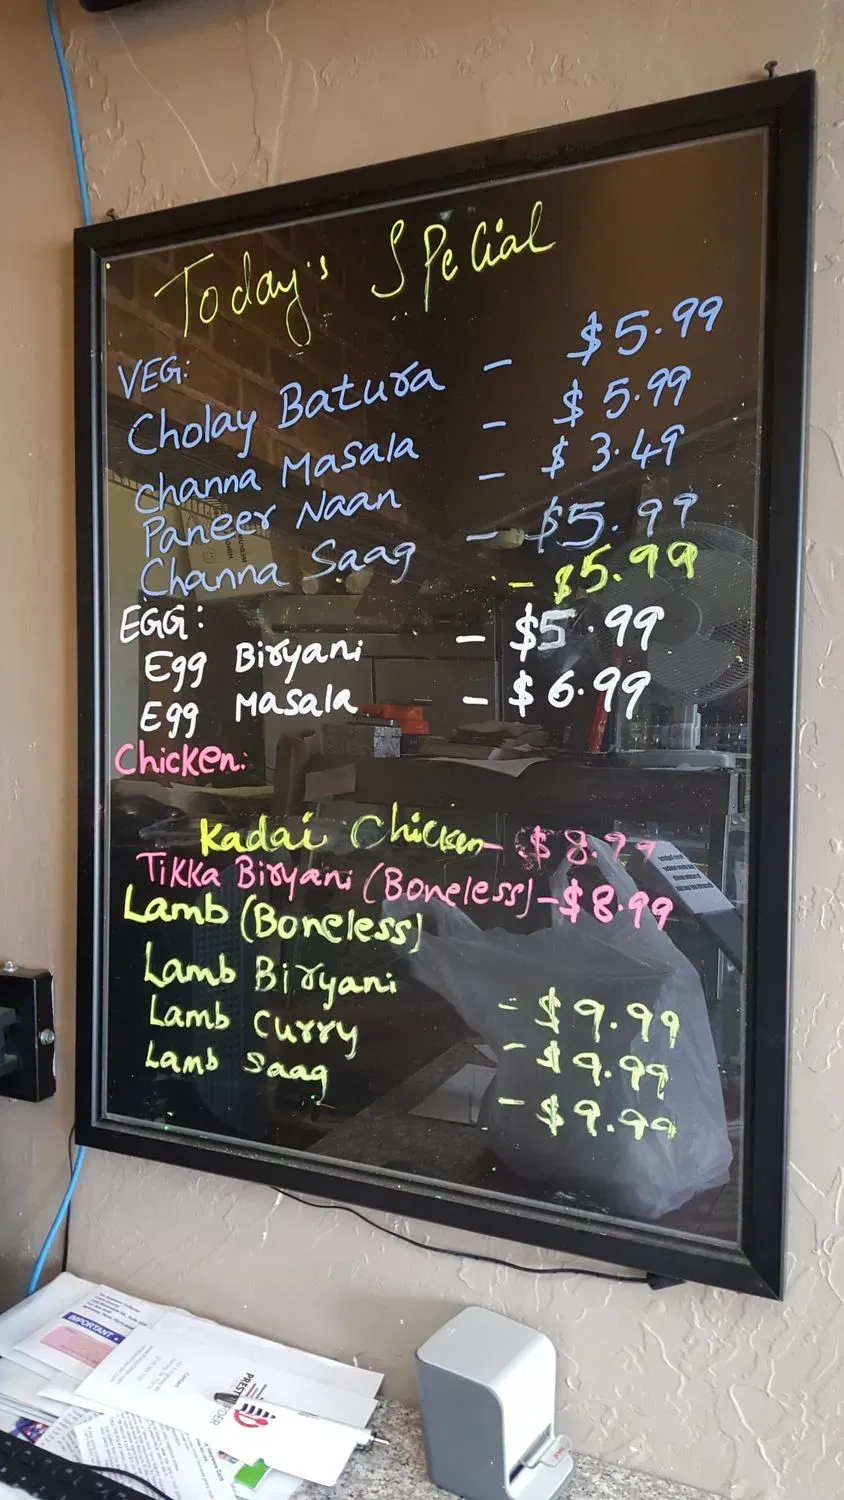 Today's Special
VEG:
Cholay Batura - $5.99
Channa Masala - $5.99
Paneer Naan - $3.49
Channa Saag - $5.99
EGG: - $5.99
Egg Biryani - $5.99
Egg Masala - $6.99
Chicken:
Kadai Chicken - $8.99
Tikka Biryani (Boneless) - $8.99
Lamb (Boneless)
Lamb Biryani - $9.99
Lamb Curry - $9.99
Lamb Saag - $9.99
IMPORTANT